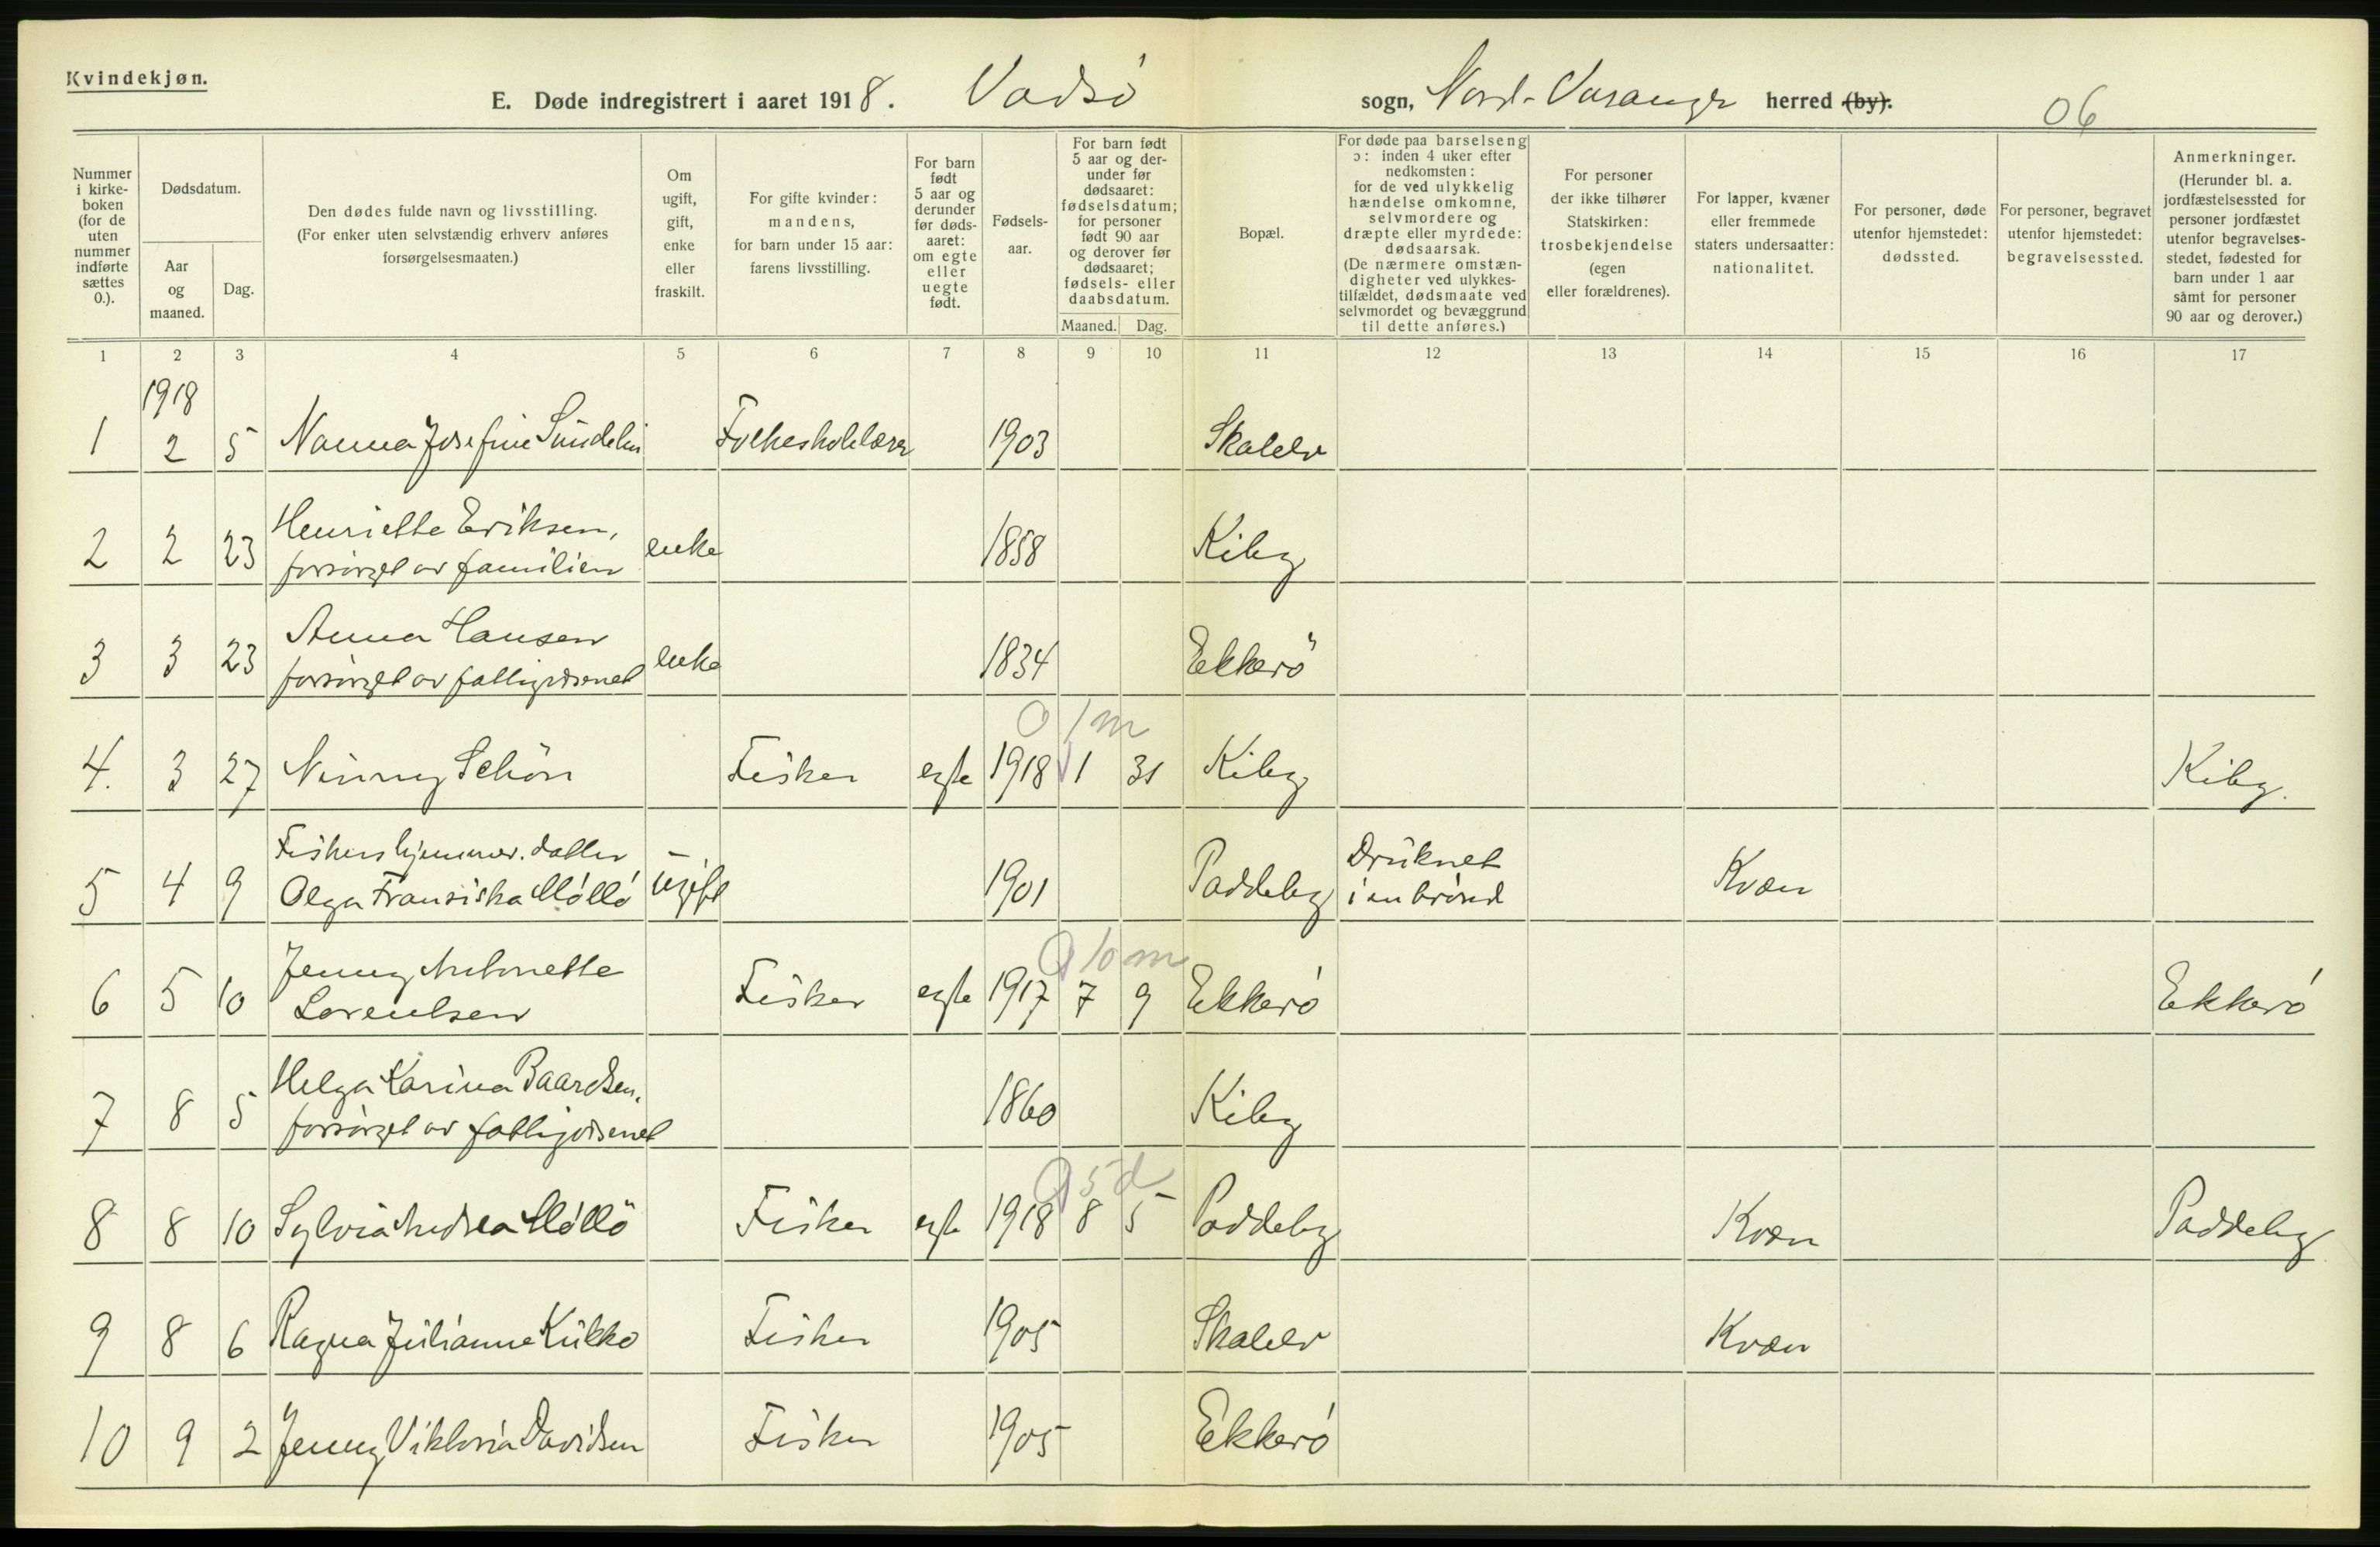 Kvindekjøn.
E. Døde indregistrert i aaret 1918. Vadsö sogn, Nord-Varanger herred (by).
06
Nummer i kirke- boken (for de uten nummer indførte sættes 0.).
Dødsdatum.
Aar og maaned.
Dag.
Den dødes fulde navn og livsstilling.
(For enker uten selvstændig erhverv anføres
forsørgelsesmaaten.)
Om ugift, gift, enke eller fraskilt.
For gifte kvinder: mandens, for barn under 15 aar: farens livsstilling.
For barn født 5 aar og derunder før døds- aaret: om egte eller uegte født.
Fødsels- aar.
For barn født 5 aar og der- under før dødsaaret: fødselsdatum; for personer født 90 aar og derover før dødsaaret; fødsels- eller daabsdatum.
Maaned. Dag.
Bopæl.
For døde paa barselseng ɔ: inden 4 uker efter nedkomsten: for de ved ulykkelig hændelse omkomne, selvmordere og dræpte eller myrdede: dødsaarsak. (De nærmere omstæn- digheter ved ulykkes- tilfældet, dødsmaate ved selvmordet og bevæggrund til dette anføres.)
For personer der ikke tilhører Statskirken: trosbekjendelse (egen eller forældrenes).
For lapper, kvæner eller fremmede staters undersaatter: nationalitet.
For personer, døde utenfor hjemstedet: dødssted.
For personer, begravet utenfor hjemstedet: begravelsessted.
Anmerkninger. (Herunder bl. a. jordfæstelsessted for personer jordfæstet utenfor begravelses- stedet, fødested for barn under 1 aar såmt for personer 90 aar og derover.)
1 2 3 4 5 6 7 8 9 10 11 12 13 14 15 16 17
1918
1 2 5 Nanna Josefine Sundelin Folkeskolelærer 1903 Skalelv
2 2 23 Henriette Eriksen, enke 1858 Kiby
forsörget av familien
3 3 23 Anna Hansen enke 1834 Ekkerö
forsörget av fattigvæsenet
0 1 m
4. 3 27 Ninny Schön Fisker egte 1918 1 31 Kiby Kiby.
Fiskers hjemmev. datter Druknet
5 4 9 Olga Fransiska Mölló ugift 1901 Paddeby i en brönd Kvæn
0 10 m
6 5 10 Jenny Antonette Fisker egte 1917 7 9 Ekkerö Ekkerö
Lorentsen
7 8 5 Helga Karina Baardsen, 1860 Kiby
forsörget av fattigvæsenet
0 5 d
8 8 10 Sylvia Andrea Möllö Fisker egte 1918 8 5 Paddeby Kvæn Paddeby
9 8 6 Ragna Julianne Kukko Fisker 1905 Skalelv Kvæn
10 9 2 Jenny Viktoria Davidsen Fisker 1905 Ekkerö